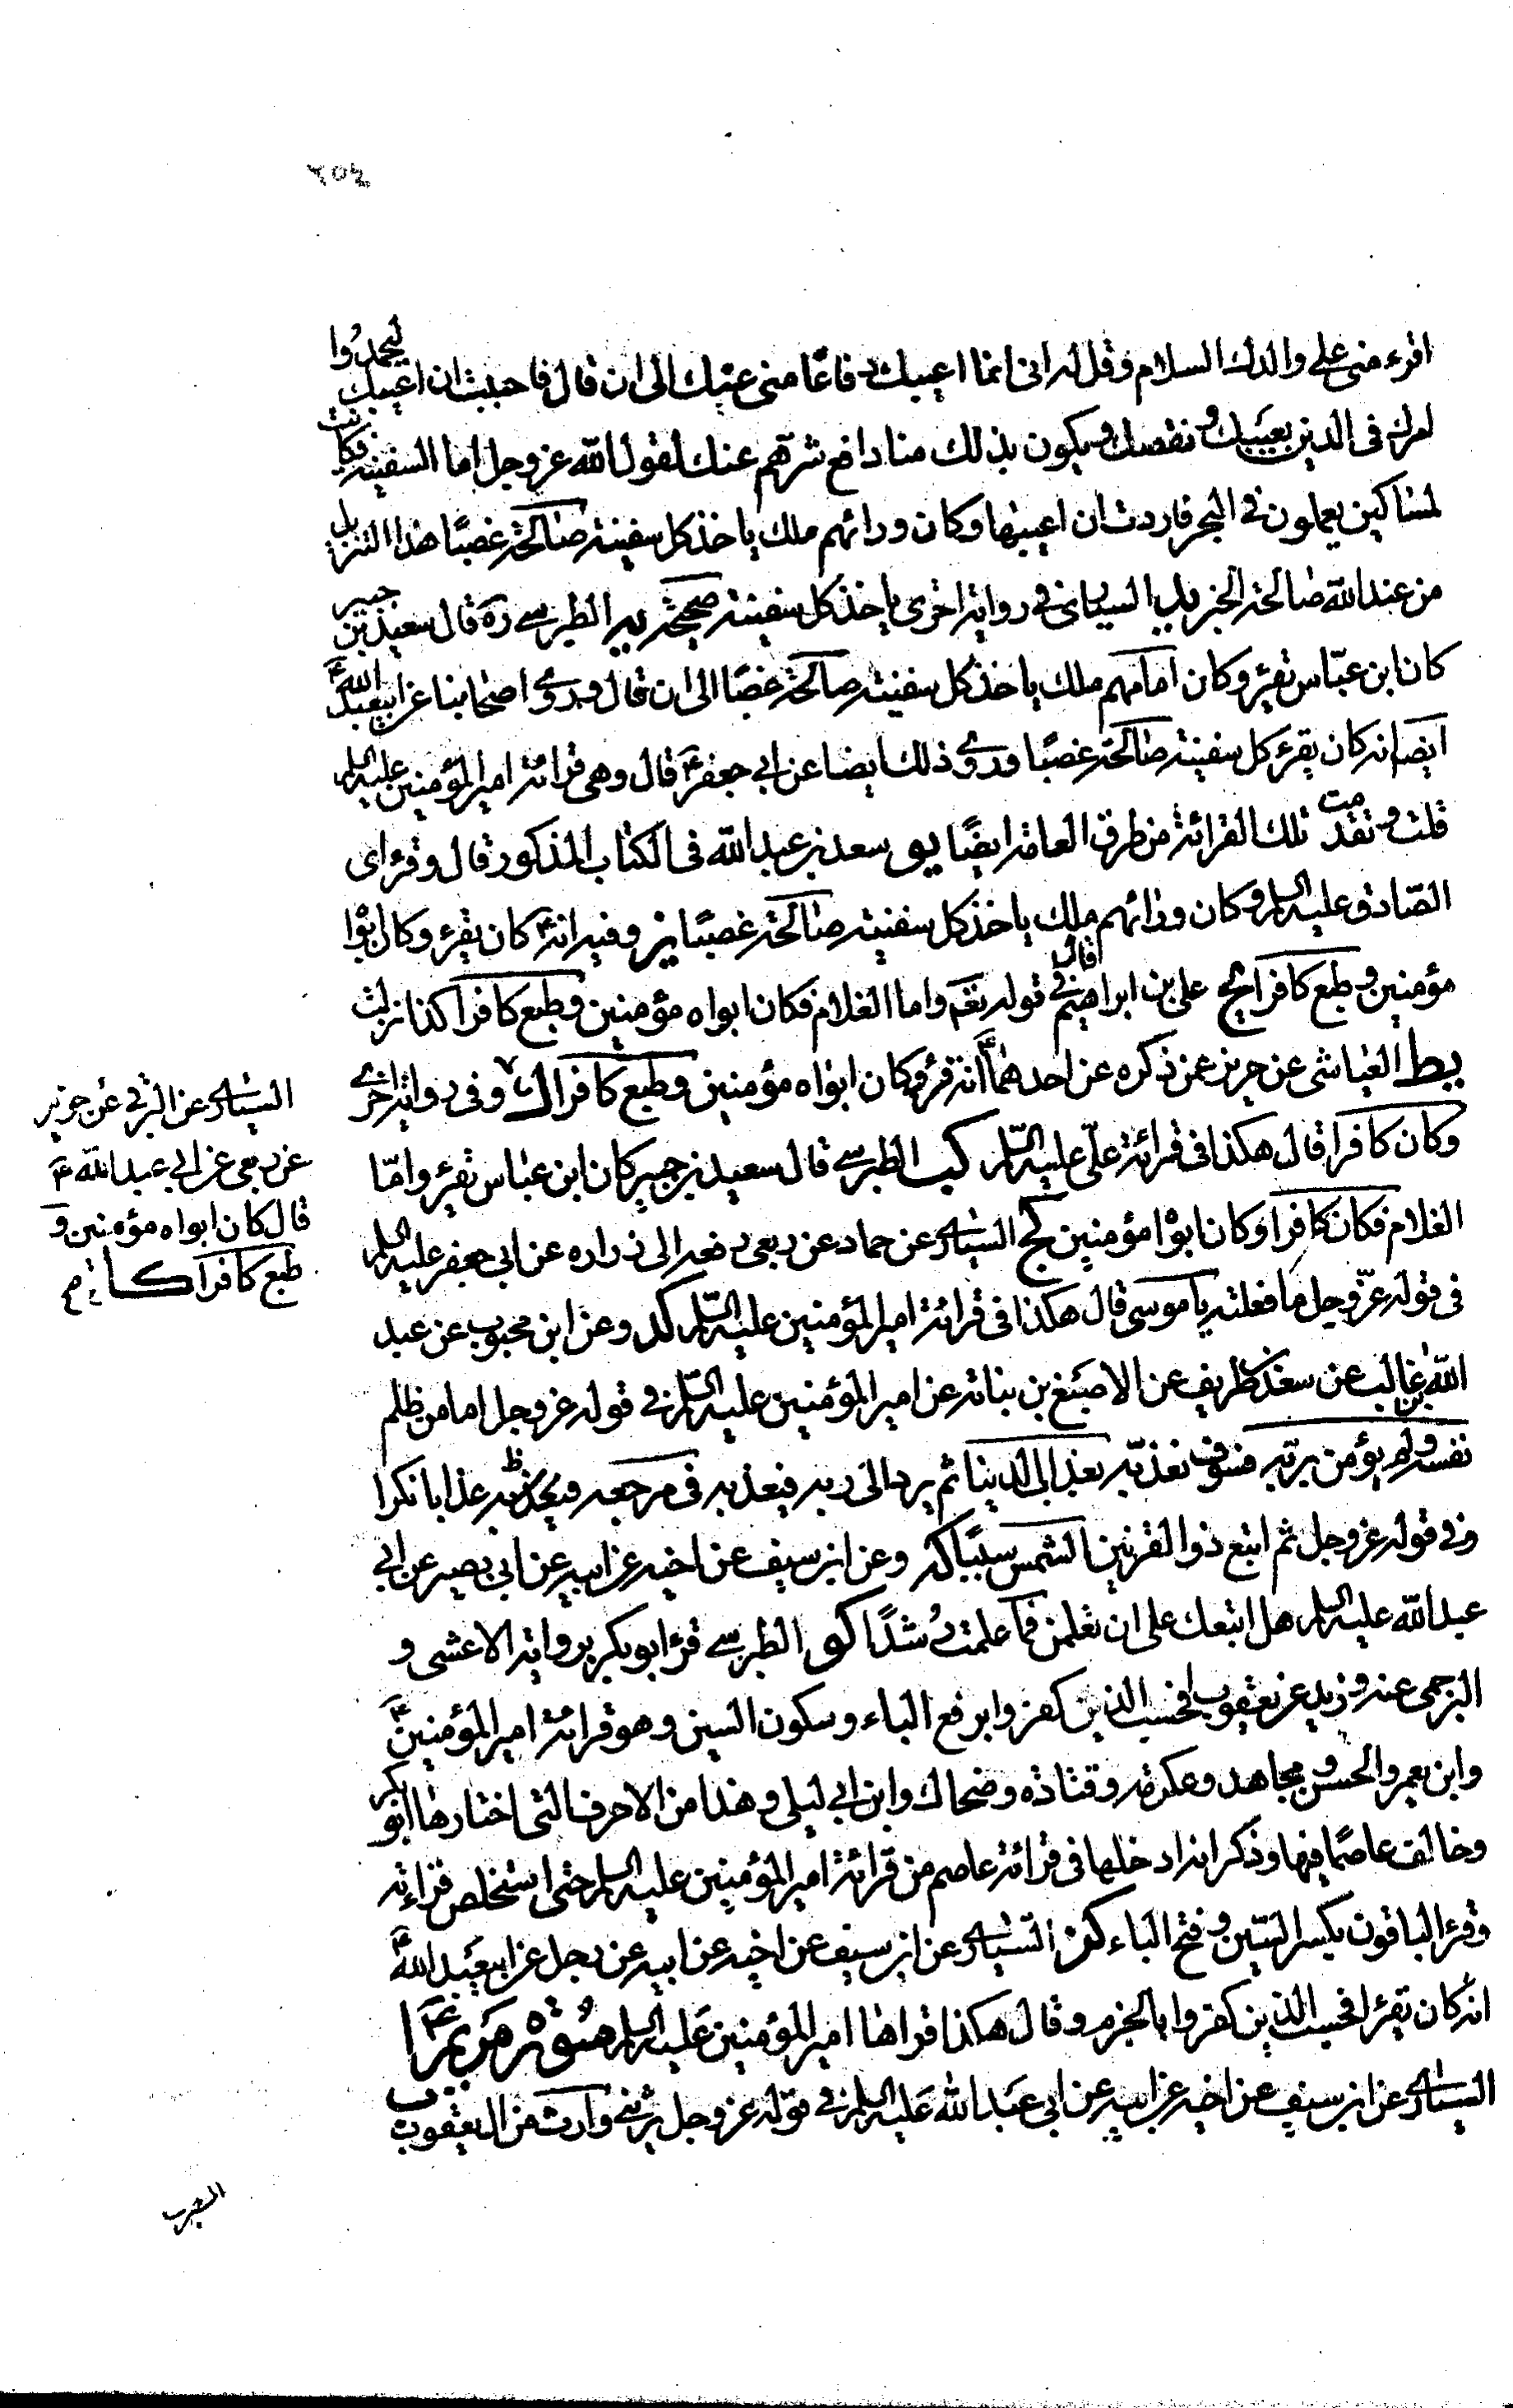 ٢٥٤
اقرء منى على والدك السلام وقل له انى انما اعيبك دفاعًا منى عنك الى ان قال فاحببت ان اعيبك ليحمدوا
امرك فى الدين بعيبك ونقصك ويكون بذلك منا دافع شرهم عنك لقول الله عز وجل اما السفينة فكانت
لمساكين يعملون فى البحر فاردت ان اعيبها وكان ورائهم ملك ياخذ كل سفينة صالحة غصبًا هذا التنزيل
من عند الله صالحة الخبر يد السيارى فى رواية اخرى ياخذ كل سفينة صحيحة يه الطبرسى ره قال سعيد بن جبير
كان ابن عباس يقرء وكان امامهم ملك ياخذ كل سفينة صالحة غصبًا الى ان قال وروى اصحابنا عن ابيعبد الله ع
ايضا انه كان يقرء كل سفينة صالحة غصبًا وروى ذلك ايضا عن ابى جعفر ع قال وهى قرائة امير المؤمنين عليه السلم
قلت وتقدمت تلك القرائة من طرق العامة ايضًا يو سعد بن عبد الله فى الكتاب المذكور قال وقرء اى
الصادق عليه السلم وكان ورائهم ملك ياخذ كل سفينة صالحة غصبًا يز وفيه انه ع كان يقرء وكان ابوا
مؤمنين وطبع كافرا يح على بن ابراهيم فى قوله تعم واما الغلام فكان ابواه مؤمنين وطبع كافرا كذا نزلت
يط العياشى عن حريز عمن ذكره عن احدهما ع انه قرء وكان ابواه مؤمنين وطبع كافرا ك وفى رواية اخرى
وكان كافرا قال هكذا فى قرائة على عليه السلم كب الطبرسى قال سعيد بن جبير كان ابن عباس يقرء وامّا
الغلام فكان كافرا وكان ابوا مؤمنين كج السيارى عن حماد عن ربعى رفعه الى زراره عن ابى جعفر عليه السلم
فى قوله عزّ وجل ما فعلته يا موسى قال هكذا فى قرائة امير المؤمنين عليه السلم كد وعن ابن محبوب عن عبد
الله بن غالب عن سعد بن طريف عن الاصبغ بن نباتة عن امير المؤمنين عليه السلم فى قوله عز وجل اما من ظلم
نفسه ولم يؤمن بربّه فسوف نعذبه بعذاب الدنيا ثم يرد الى ربه فيعذبه فى مرجعه فيعذبه عذابا نكرا
وفى قوله عز وجل ثم اتبع ذو القرنين الشمس سببًا كه وعن ابن سيف عن اخيه عن ابيه عن ابى بصير عن ابى
عبد الله عليه السلم هل اتبعك على ان تعلمن مما علمت رُشدًا كو الطبرسى قرء ابو بكر برواية الاعشى و
البرجمى عنه وزيد عن يعقوب افحسب الذين كفروا برفع الباء وسكون السين وهو قرائة امير المؤمنين ع
وابن يعمر والحسن ومجاهد وعكرمه وقتاده وضحاك وابن ابى ليلى وهذا من الاحرف التى اختارها ابو بكر
وخالف عاصمًا فيها وذكر انه ادخلها فى قرائة عاصم من قرائة امير المؤمنين عليه السلم حتى استخلص قراءته
وقرء الباقون بكسر السّين وفتح الباء كز السيارى عن ابن سيف عن اخيه عن ابيه عن رجل عن ابيعبد الله ع
انه كان يقرء افحسب الذين كفروا بالجزم وقال هكذا قراها امير المؤمنين عليه السلم سورة مريم ع ا
السيارى عن ابن سيف عن اخيه عن ابيه عن ابى عبد الله عليه السلم فى قوله عز وجل يرثنى وارث من ال يعقوب ب
السيارى عن البرقى عن حريز
عن ربعى عن ابى عبد الله ع
قال كان ابواه مؤمنين و
طبع كافرا كا